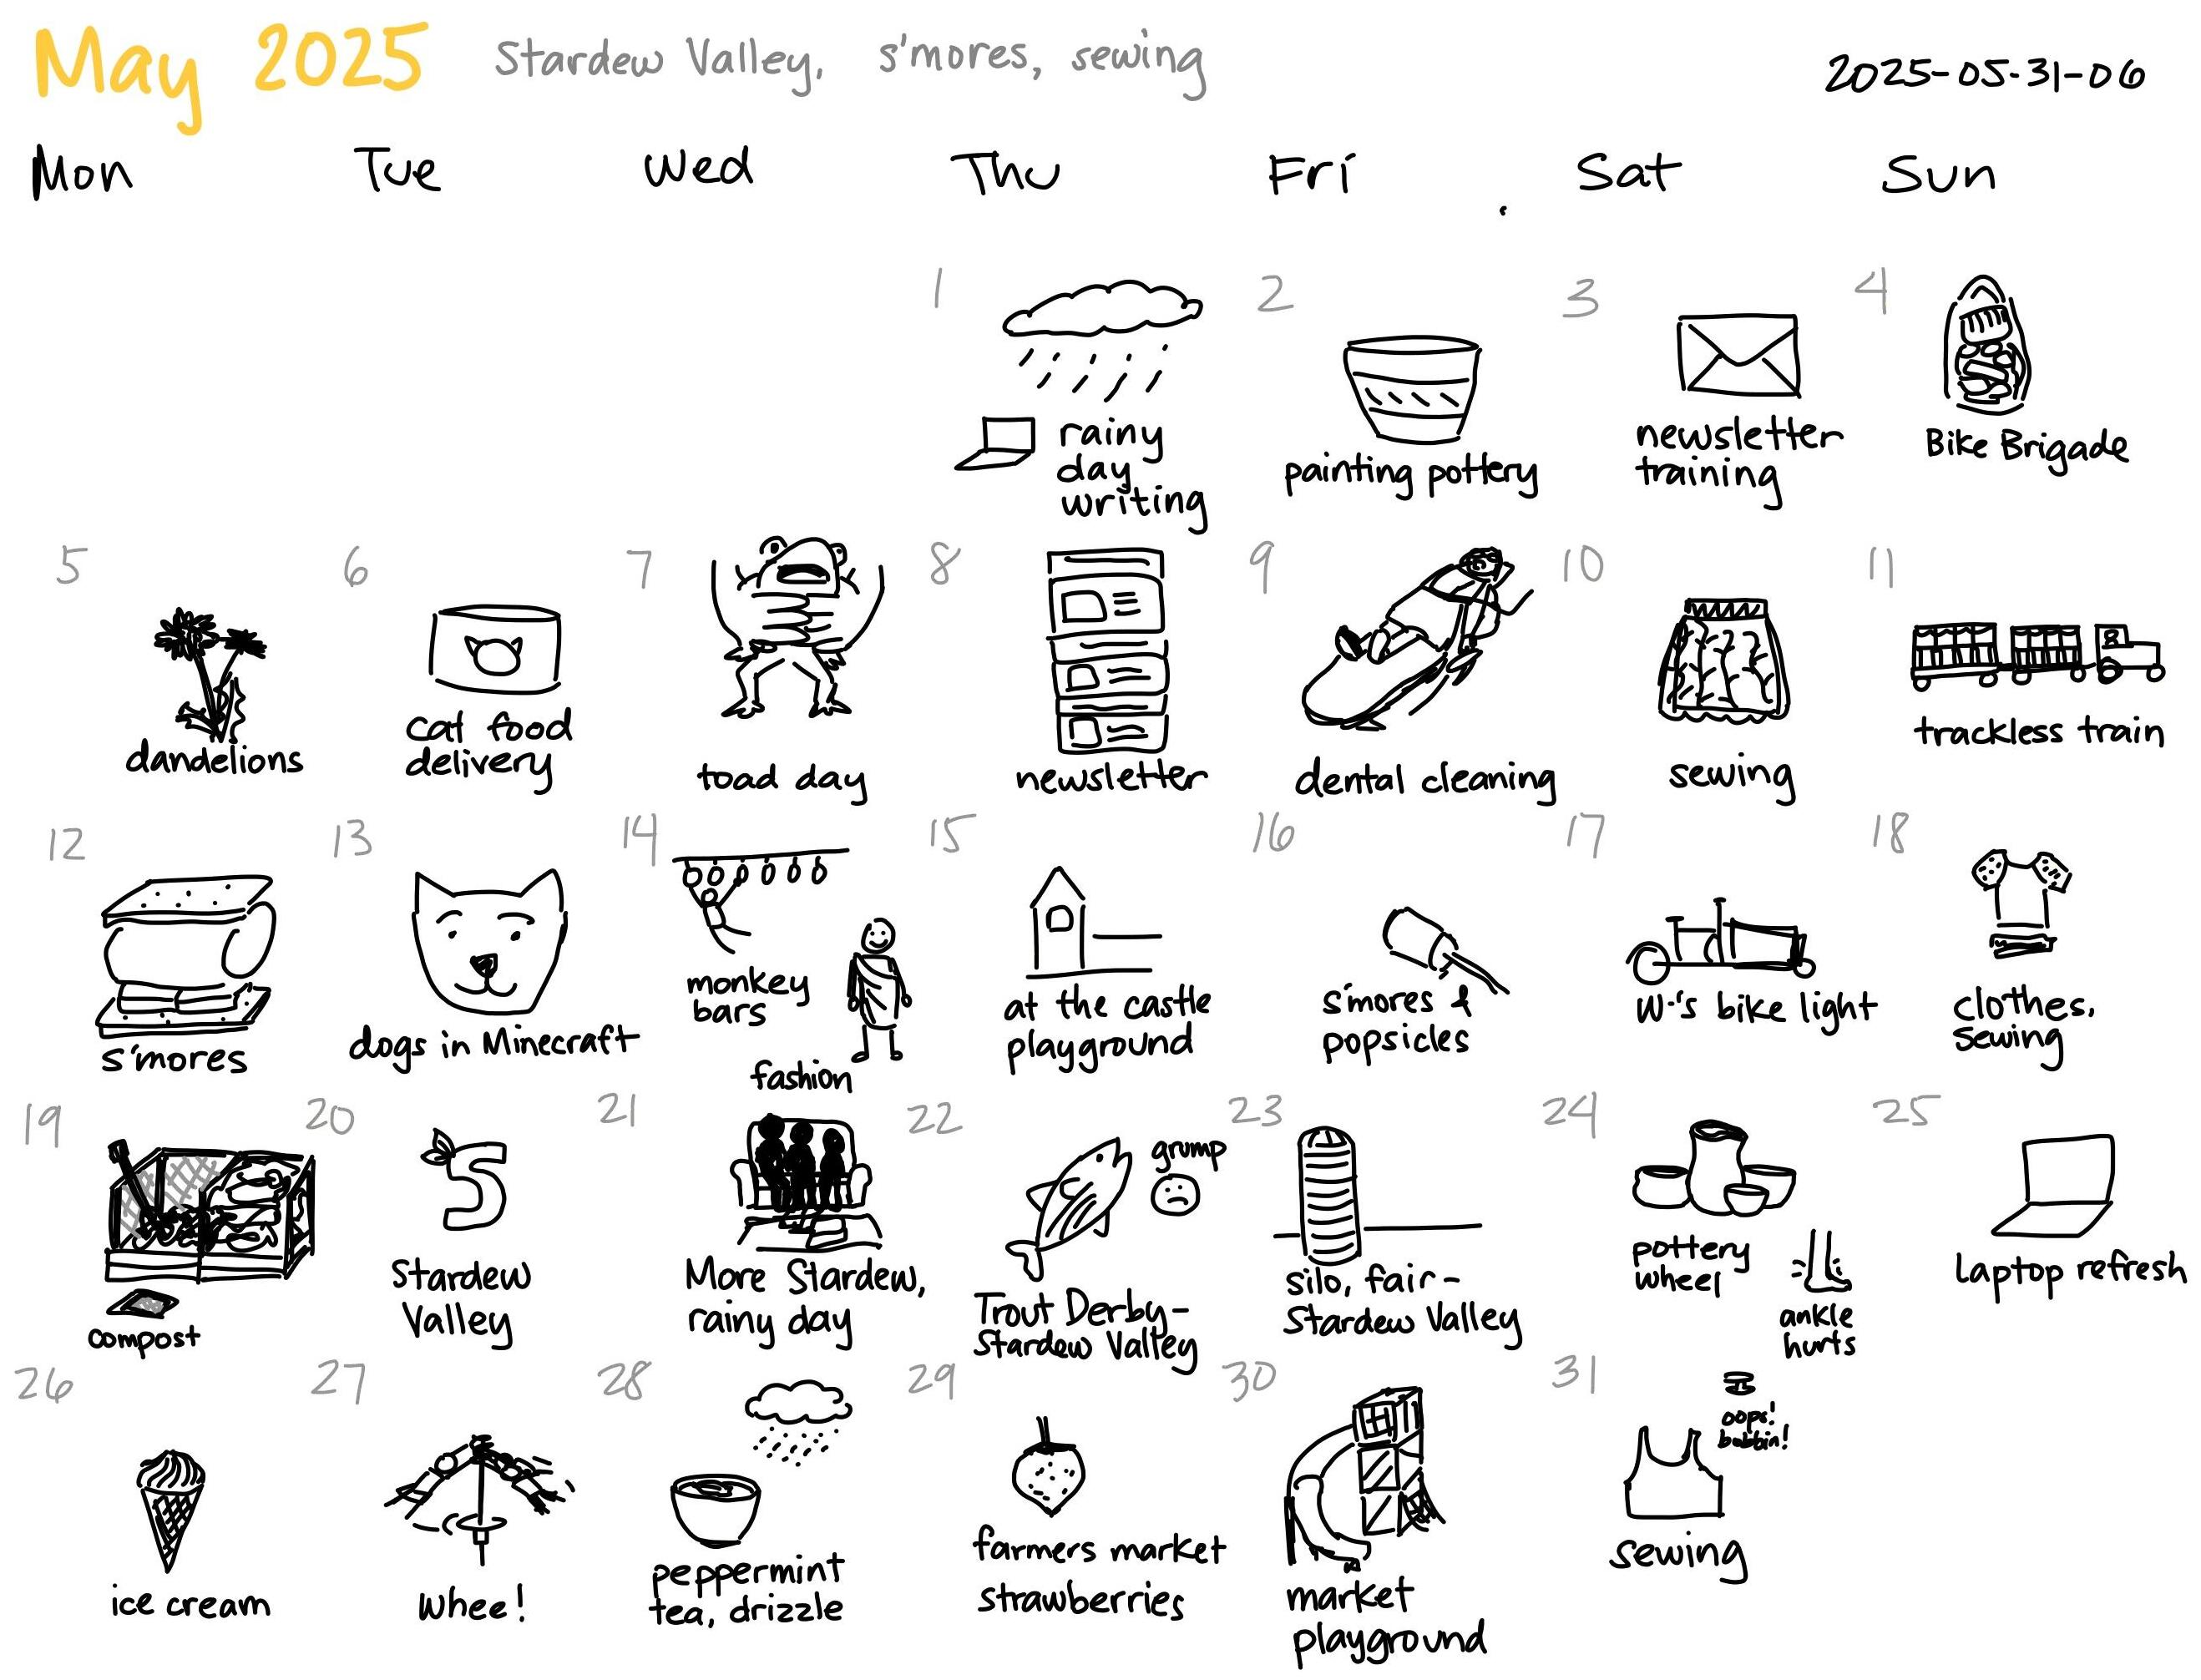 May 2025 Stardew Valley, s'mores, sewing 2025-05-31-06
Mon Tue Wed Thu Fri Sat Sun
1
rainy
day
writing
2
painting pottery
3
newsletter
training
4
Bike Brigade
5
dandelions
6
cat food
delivery
7
toad day
8
newsletter
9
dental cleaning
10
sewing
11
trackless train
12
s'mores
13
dogs in Minecraft
14
monkey
bars
fashion
15
at the castle
playground
16
s'mores &
popsicles
17
W-'s bike light
18
clothes,
sewing
19
compost
20
Stardew
Valley
21
More Stardew,
rainy day
22
grump
Trout Derby-
Stardew Valley
23
silo, fair-
Stardew Valley
24
pottery
wheel
ankle
hurts
25
laptop refresh
26
ice cream
27
whee!
28
peppermint
tea, drizzle
29
farmers market
strawberries
30
market
playground
31
oops!
bobbin!
sewing